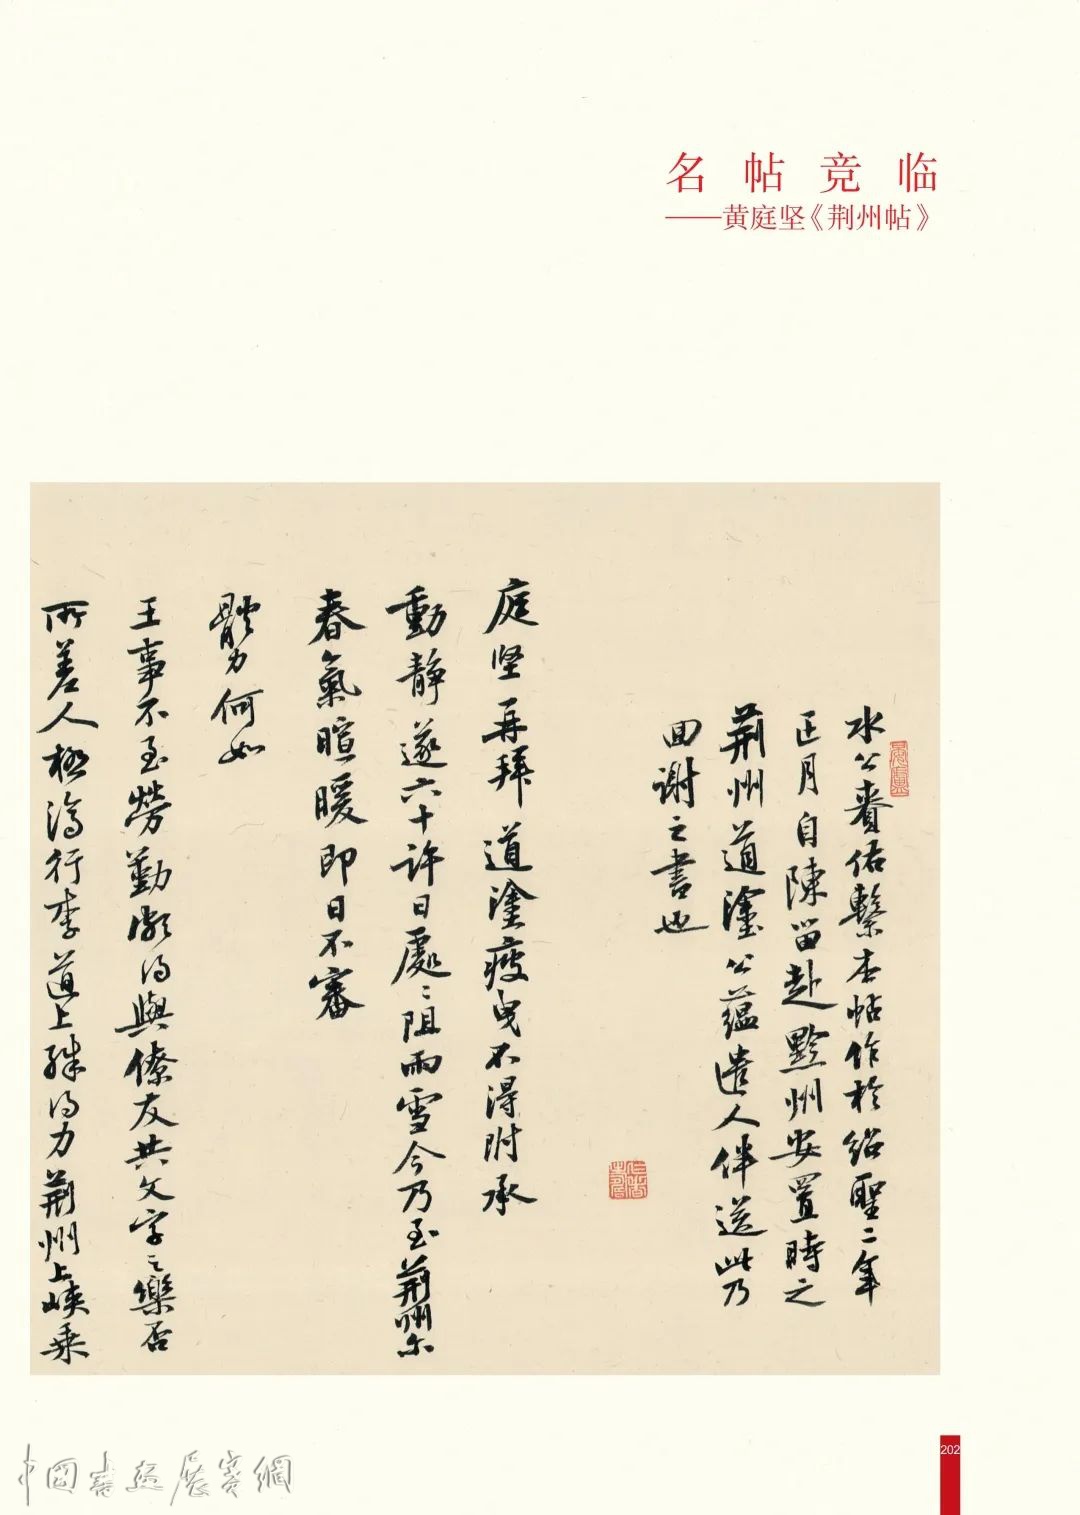 名帖竞临
——黄庭坚《荆州帖》
水公賚佑繫本帖作於紹聖二年
正月自陳留赴黔州安置時之
荆州道塗公蘊遣人伴送此乃
回谢之書也
庭坚再拜道塗疲曳不得附承
動静遂六十許日處〻阻雨雪今乃至荆州尔
春氣暄暖即日不審
體力何如
王事不至勞勤漸得與僚友共文字之樂否
所差人極濟行李道上殊得力荆州上峡乘
中國書畫展賽網
202